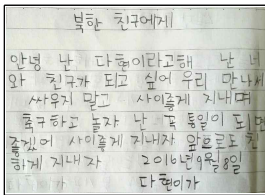 북한 친구에게
안녕 난 다현이라고해 난 너
와 친구가 되고 싶어 우리 만나서
싸우지 말고 사이좋게 지내며
축구하고 놀자 난 꼭 통일이 되면
좋겠어 사이좋게 지내자 앞으로도 친
하게 지내자 2016년9월8일
다현이가